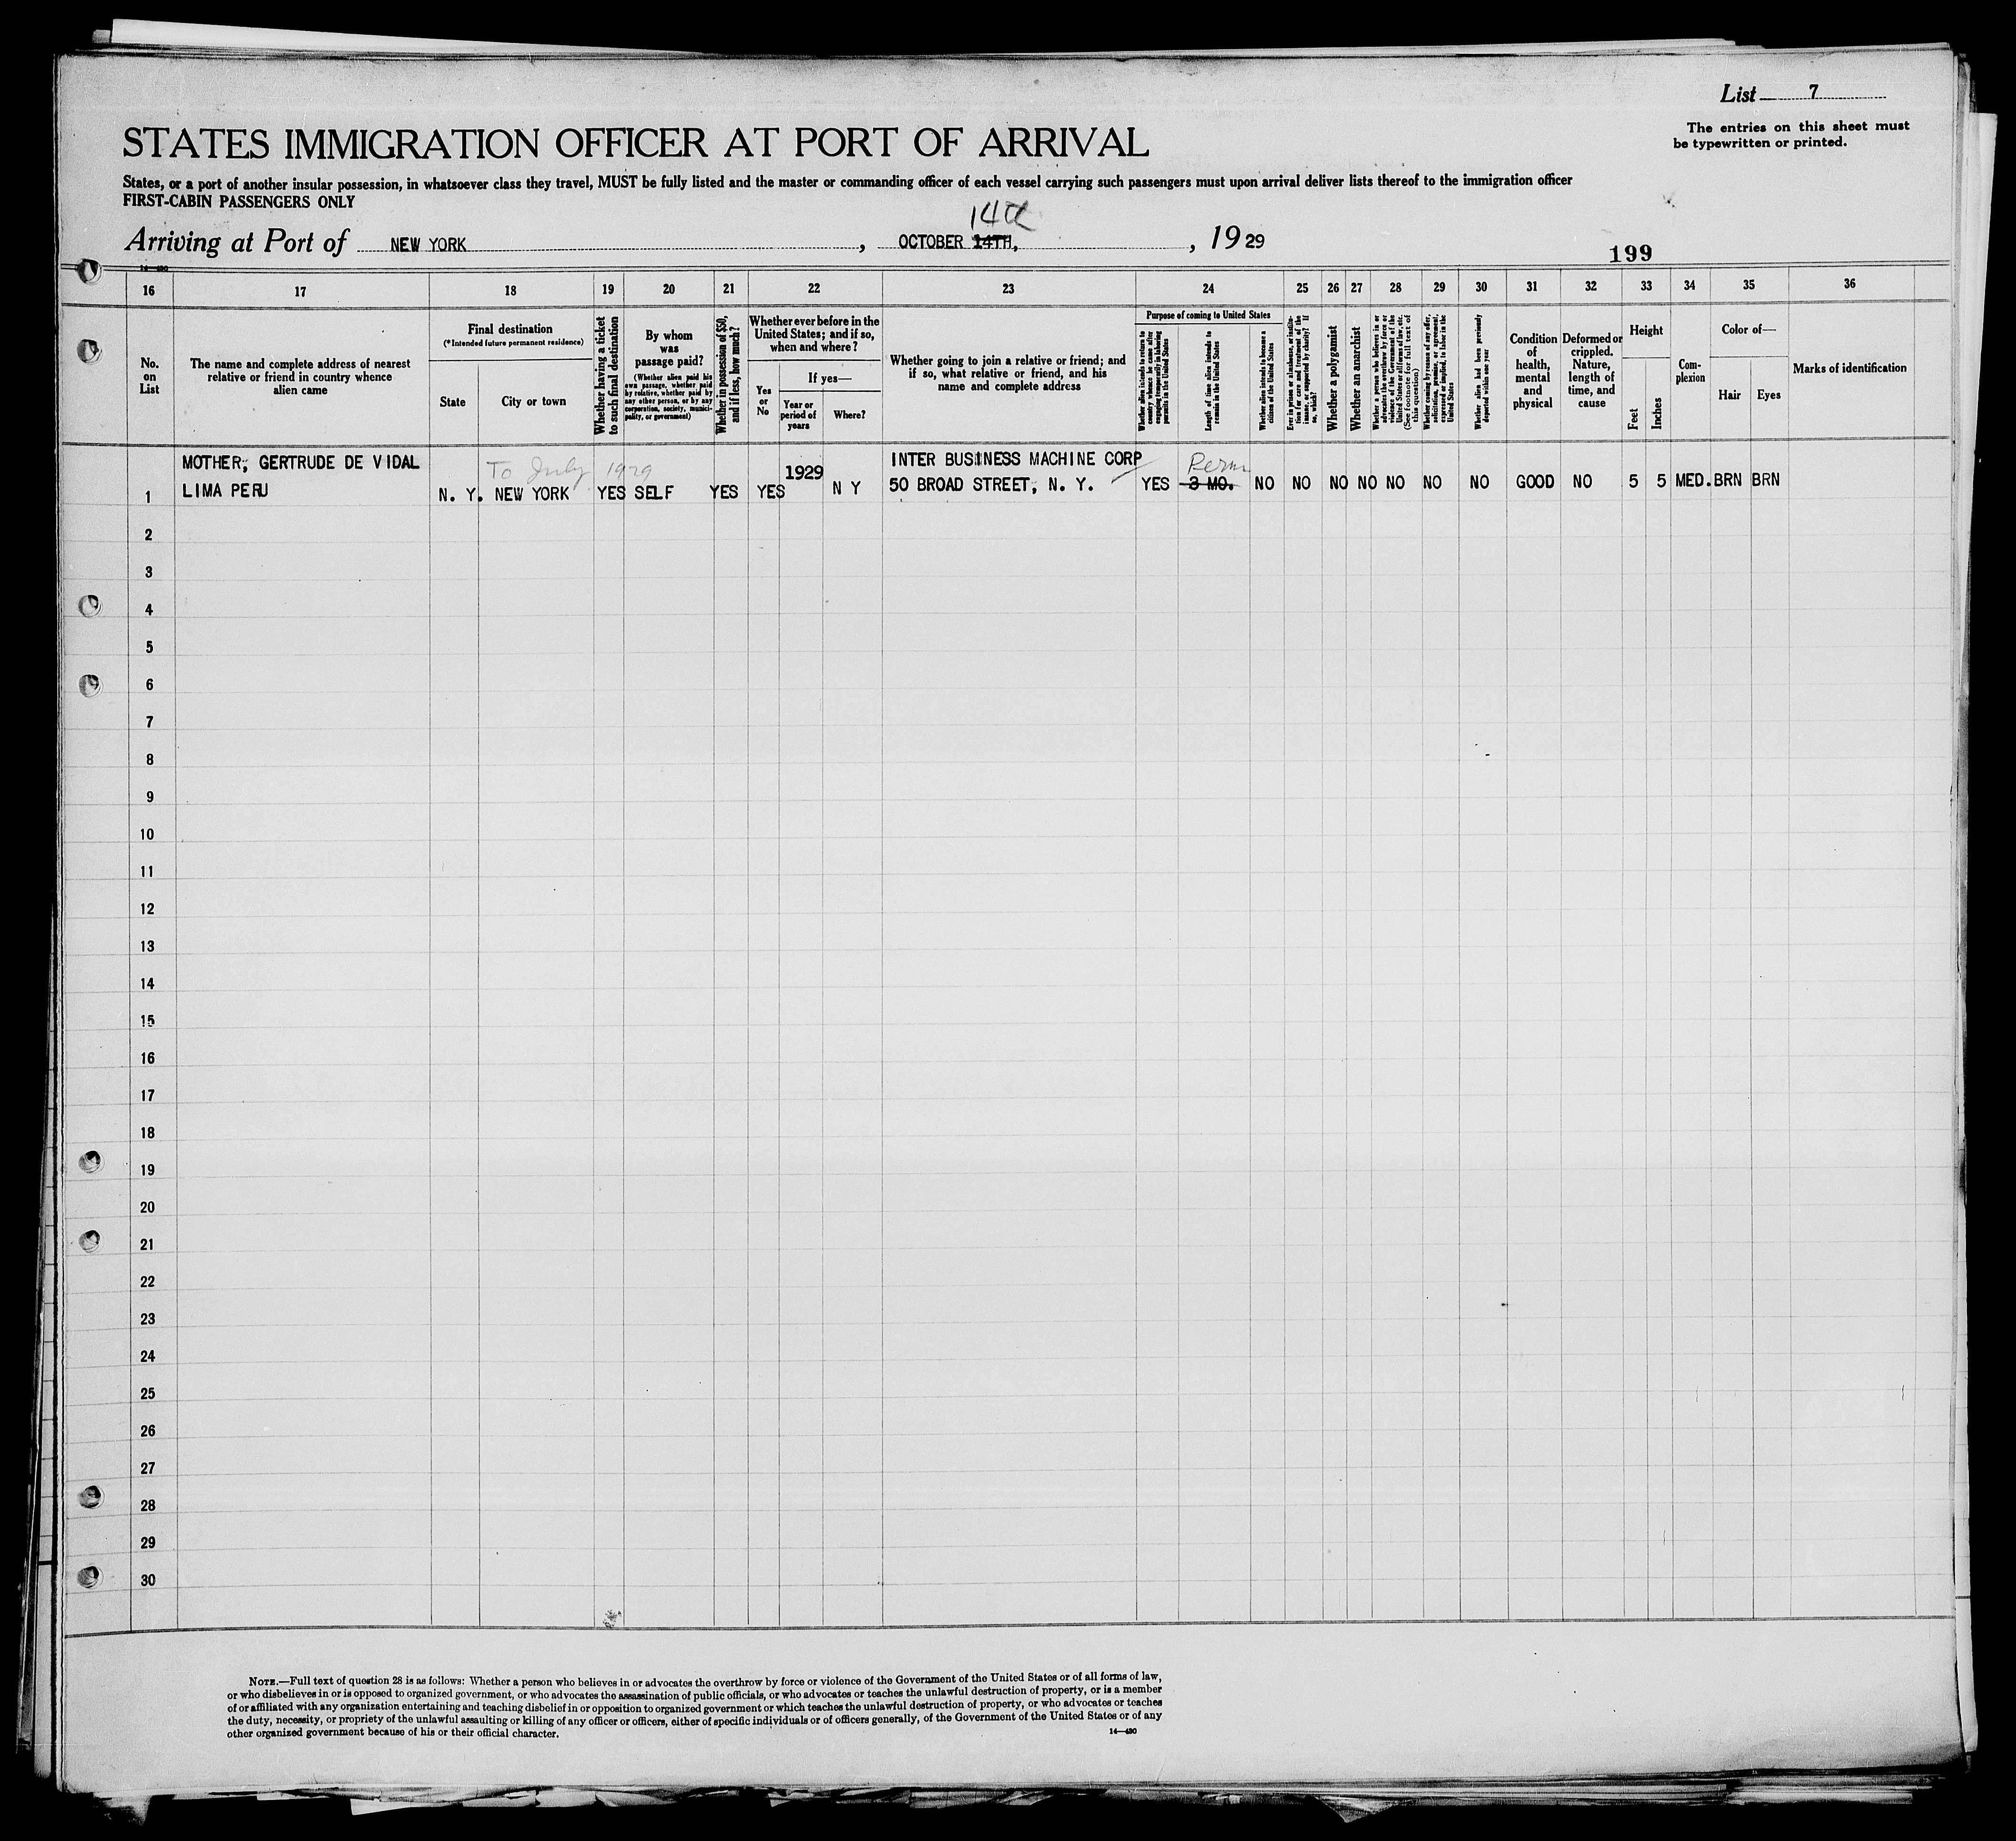 List 7
The entries on this sheet must
be typewritten or printed.
STATES IMMIGRATION OFFICER AT PORT OF ARRIVAL
States, or a port of another insular possession, in whatsoever class they travel, MUST be fully listed and the master or commanding officer of each vessel carrying such passengers must upon arrival deliver lists thereof to the immigration officer
FIRST-CABIN PASSENGERS ONLY
14th
Arriving at Port of NEW YORK, OCTOBER 14TH, 1929
199
14—430
16 17 18 19 20 21 22 23 24 25 26 27 28 29 30 31 32 33 34 35 36
No.
on
List
The name and complete address of nearest
relative or friend in country whence
alien came
Final destination
(*Intended future permanent residence)
State
City or town
Whether having a ticket
to such final destination
By whom
was
passage paid?
(Whether alien paid his
own passage, whether paid
by relative, whether paid by
any other person, or by any
corporation, society, munici-
pality, or government)
Whether in possession of $50,
and if less, how much?
Whether ever before in the
United States; and if so,
when and where?
Yes
or
No
If yes—
Year or
period of
years
Where?
Whether going to join a relative or friend; and
if so, what relative or friend, and his
name and complete address
Purpose of coming to United States
Whether alien intends to return to
country whence he came after
engaging temporarily in laboring
pursuits in the United States
Length of time alien intends to
remain in the United States
Whether alien intends to become a
citizen of the United States
Ever in prison or almshouse, or institu-
tion for care and treatment of the
insane, or supported by charity? If
so, which?
Whether a polygamist
Whether an anarchist
Whether a person who believes in or
advocates the overthrow by force or
violence of the Government of the
United States or all forms of law, etc.
(See footnote for full text of
this question)
Whether coming by reason of any offer,
solicitation, promise, or agreement,
expressed or implied, to labor in the
United States
Whether alien had been previously
deported within one year
Condition
of
health,
mental
and
physical
Deformed or
crippled.
Nature,
length of
time, and
cause
Height
Feet
Inches
Com-
plexion
Color of—
Hair
Eyes
Marks of identification
MOTHER, GERTRUDE DE VIDAL To July 1929 1929 INTER BUSINESS MACHINE CORP Perm
1 LIMA PERU N. Y. NEW YORK YES SELF YES YES N Y 50 BROAD STREET, N. Y. YES 3 MO. NO NO NO NO NO NO NO GOOD NO 5 5 MED. BRN BRN
2
3
4
5
6
7
8
9
10
11
12
13
14
15
16
17
18
19
20
21
22
23
24
25
26
27
28
29
30
NOTE.—Full text of question 28 is as follows: Whether a person who believes in or advocates the overthrow by force or violence of the Government of the United States or of all forms of law,
or who disbelieves in or is opposed to organized government, or who advocates the assassination of public officials, or who advocates or teaches the unlawful destruction of property, or is a member
of or affiliated with any organization entertaining and teaching disbelief in or opposition to organized government or which teaches the unlawful destruction of property, or who advocates or teaches
the duty, necessity, or propriety of the unlawful assaulting or killing of any officer or officers, either of specific individuals or of officers generally, of the Government of the United States or of any
other organized government because of his or their official character.
14—430